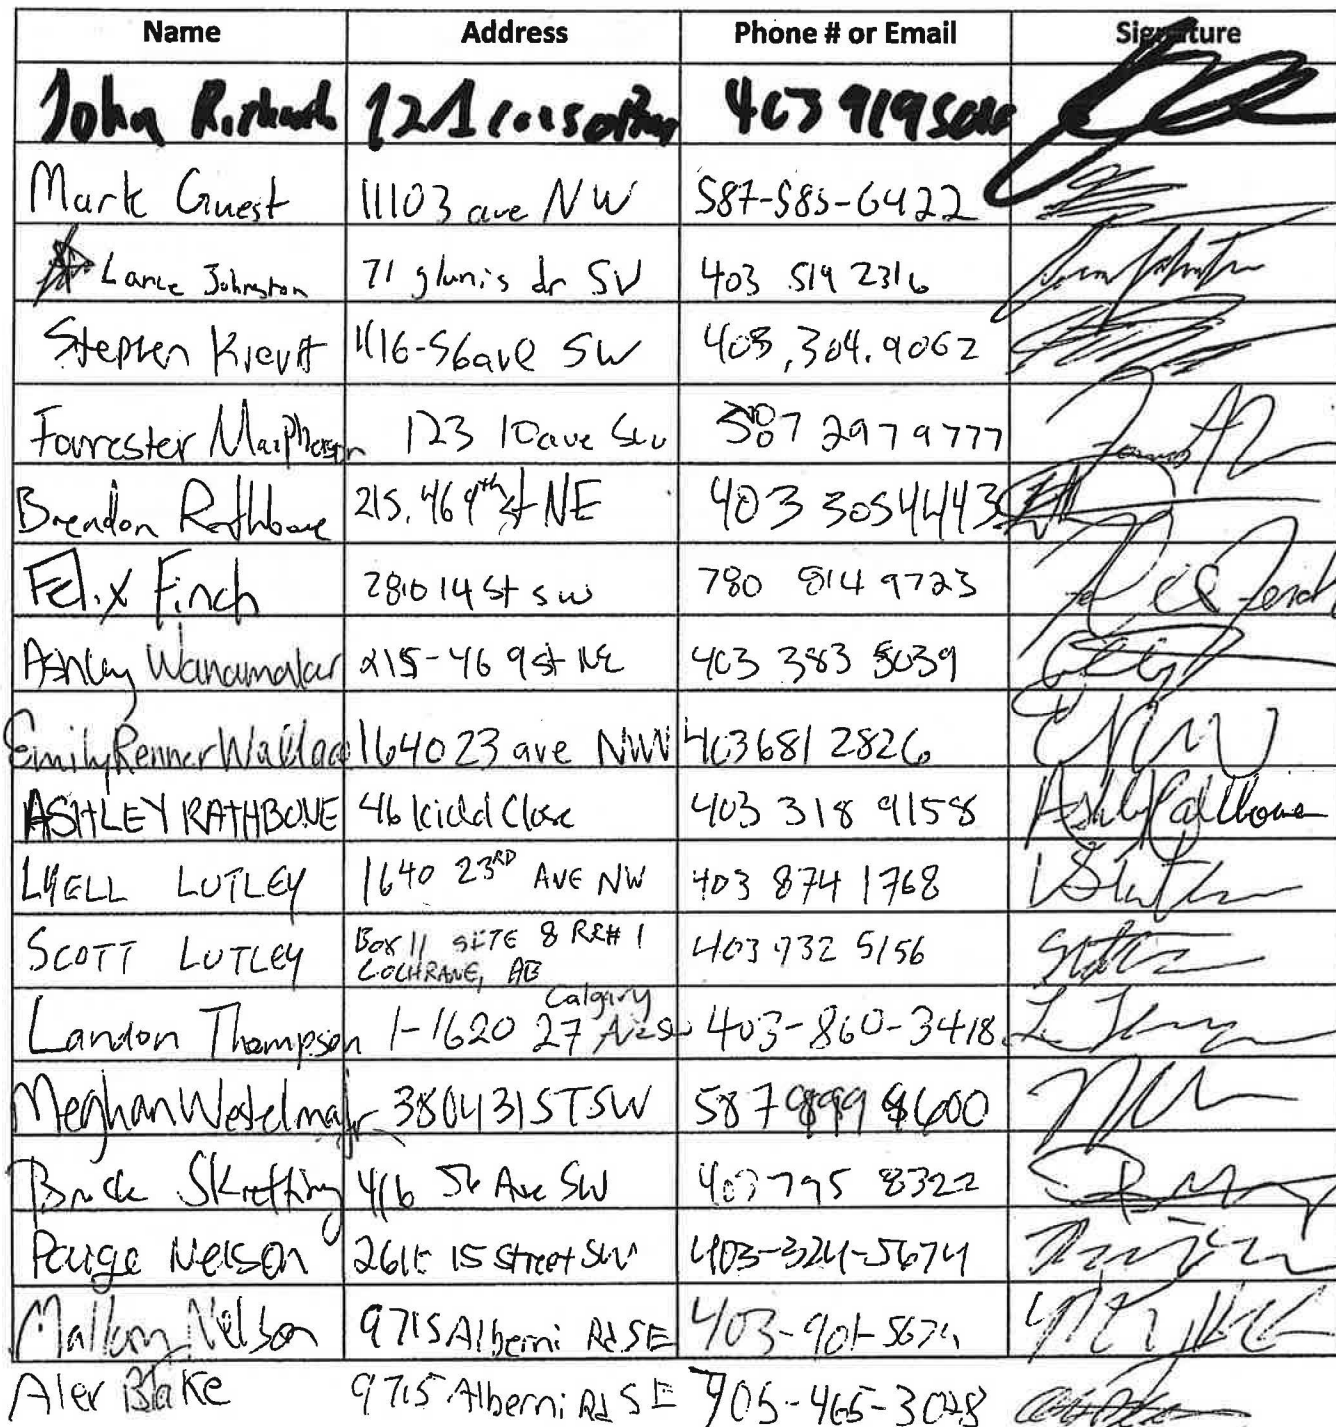 Name Address Phone # or Email Signature
John 121 403 919
Mark Guest 11103 ave NW 587-585-6422
Lance Johnston 71 glunis dr SW 403 519 2316
Stephen 416-56ave SW 403.304.9062
Forrester Macpherson 123 10ave SW 587 297 9777
Brendon Rathbone 215, 46 9th st NE 403 305 4443
Felix Finch 2810 14 st sw 780 814 9723
Ashley Wanamaker 215-46 9st NE 403 383 5039
Emily Renner Wallace 1640 23 ave NW 403 681 2826
ASHLEY RATHBONE 46 Kidd Close 403 318 9158 Ashley Rathbone
LYELL LUTLEY 1640 23RD AVE NW 403 874 1768
SCOTT LUTLEY Box 11 SITE 8 RR# 1 403 932 5156
COCHRANE, AB
Calgary
Landon Thompson 1-1620 27 Ave SW 403-860-3418
Meghan 3804 31 ST SW 587 899 8600
416 56 Ave SW 403 795 8322
Paige Nelson 15 Street SW 403-324-5674
Mallory Nelson 9715 Alberni Rd SE 403-901-5674
Alex Blake 9715 Alberni Rd SE 905-465-3028